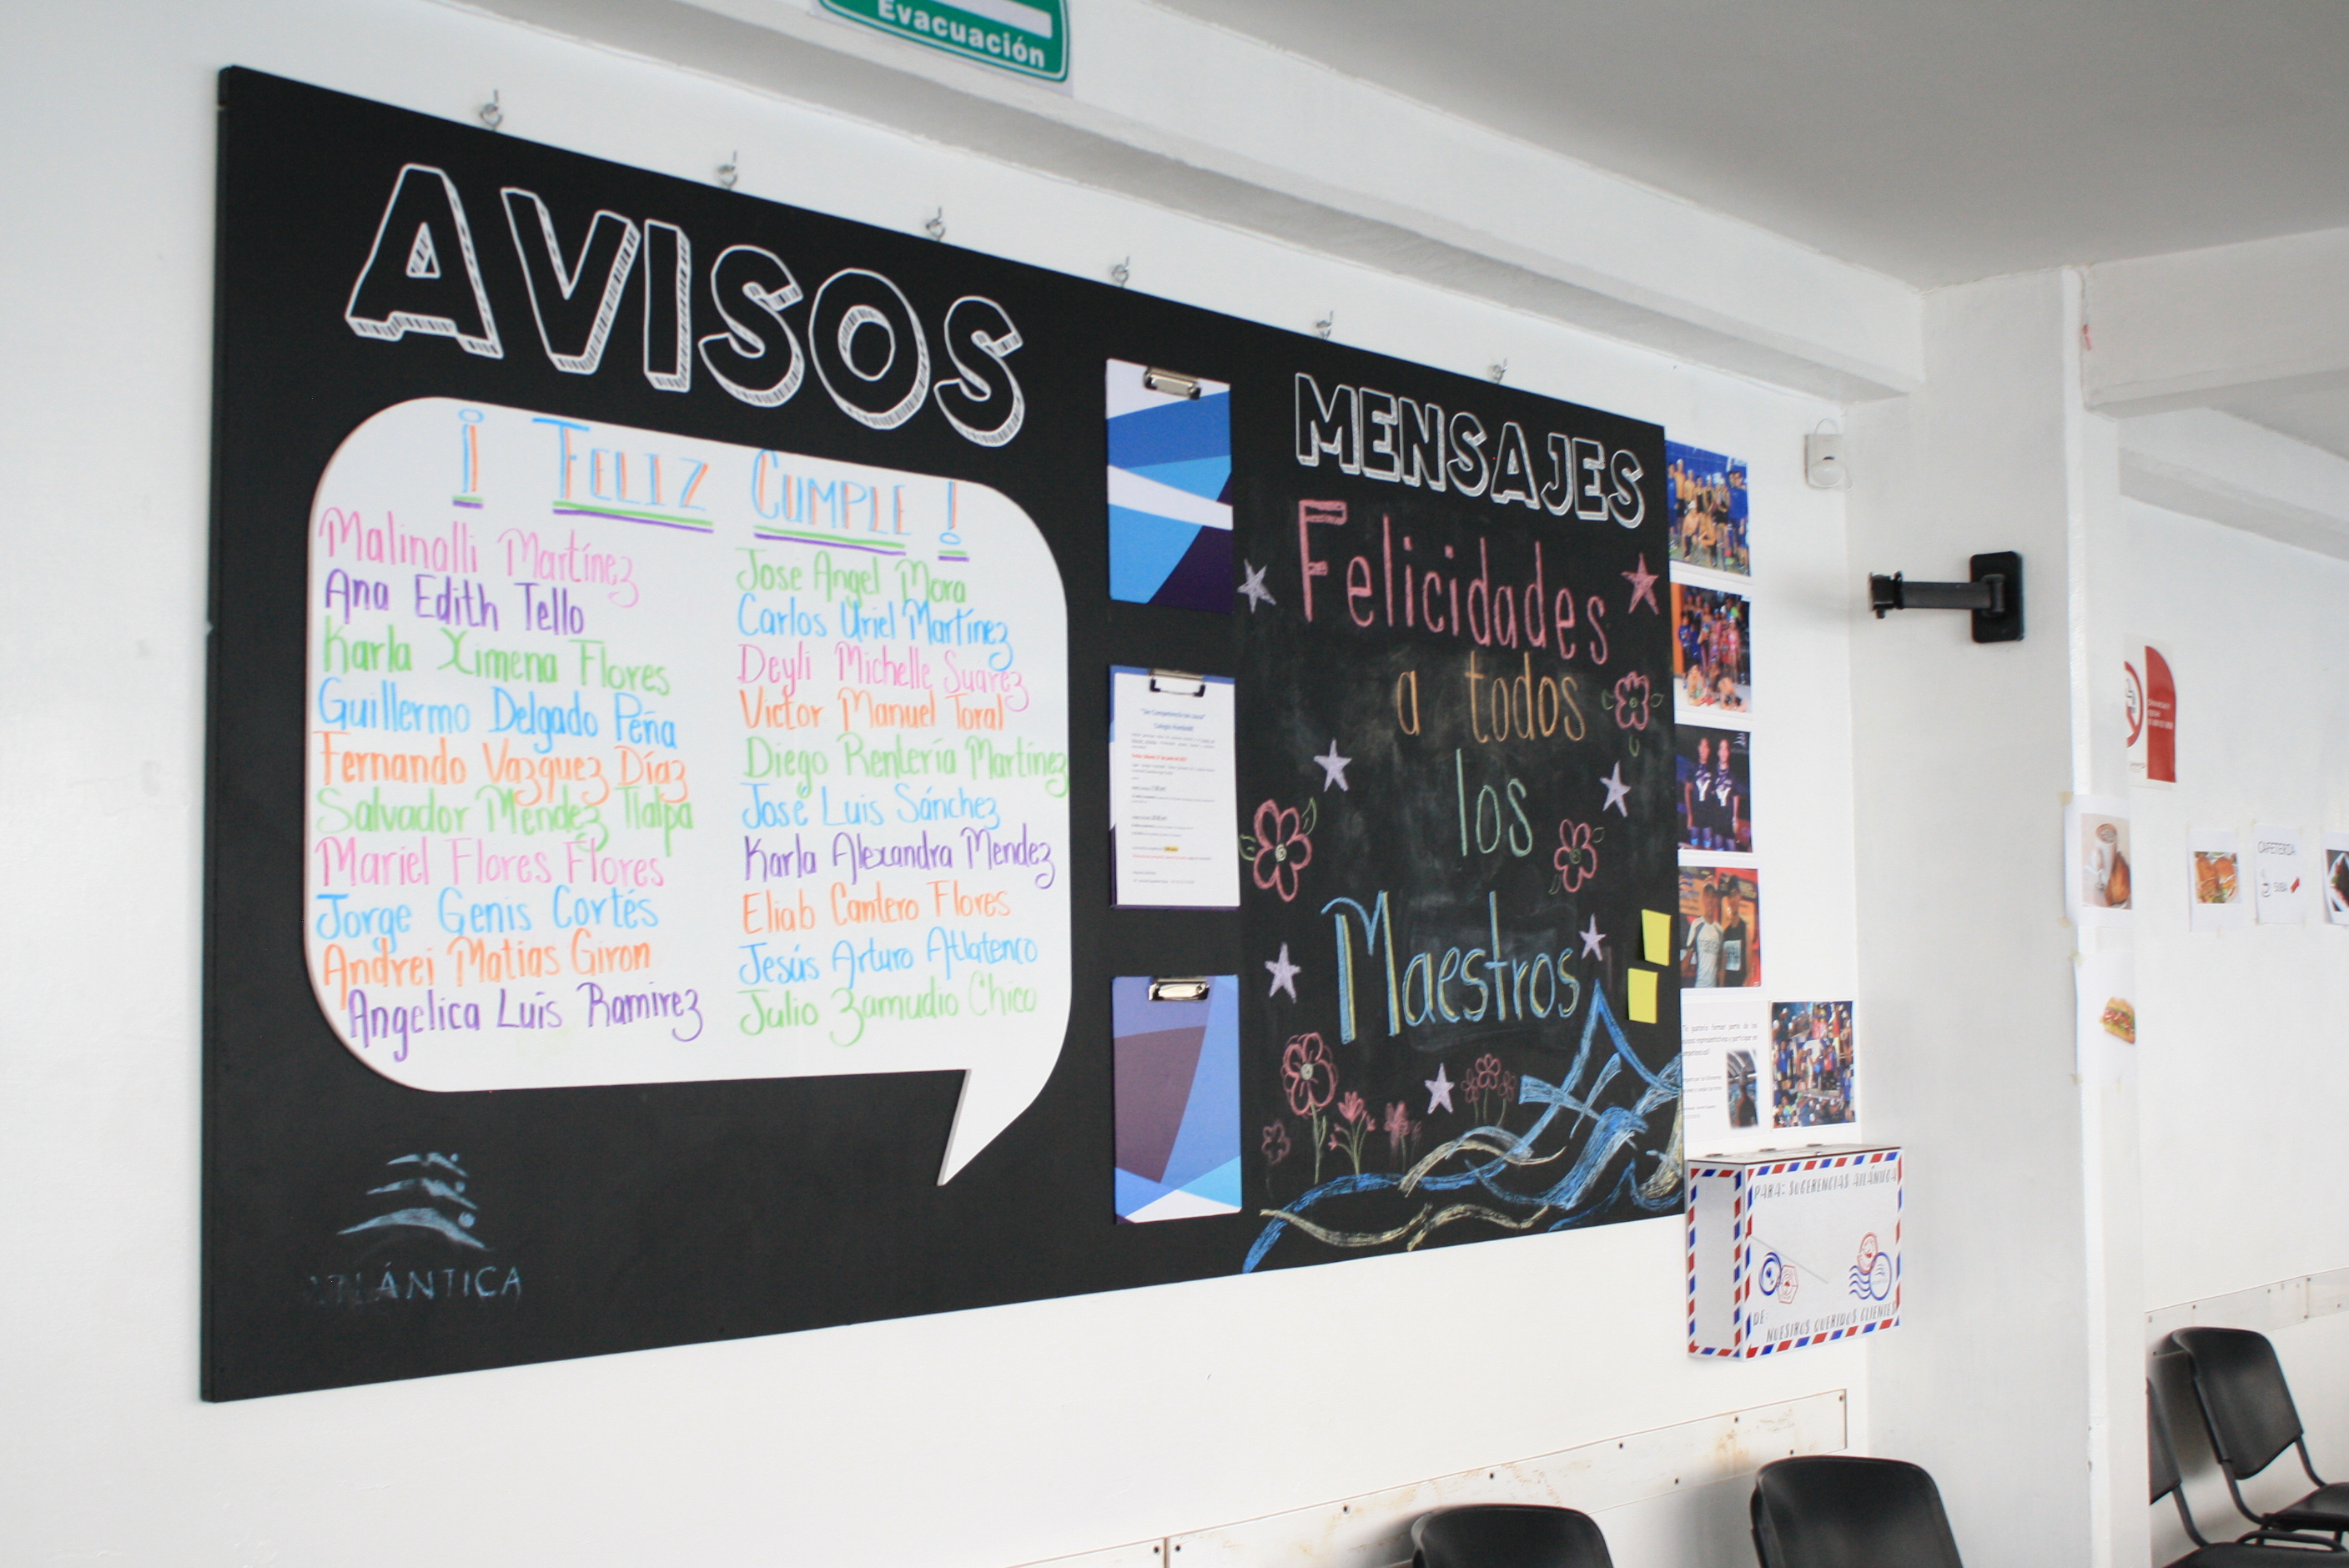 Evacuación
AVISOS
¡ FELIZ CUMPLE !
Malinalli Martínez
Ana Edith Tello
Karla Ximena Flores
Guillermo Delgado Peña
Fernando Vazquez Díaz
Salvador Mendez Tlalpa
Mariel Flores Flores
Jorge Genis Cortés
Andrei Matias Giron
Angelica Luis Ramirez
José Angel Mora
Carlos Uriel Martínez
Deyli Michelle Suarez
Victor Manuel Toral
Diego Rentería Martínez
José Luis Sánchez
Karla Alexandra Mendez
Eliab Cantero Flores
Jesús Arturo Atlatenco
Julio Zamudio Chico
ATLÁNTICA
MENSAJES
Felicidades
a todos
los
Maestros
PARA: SUGERENCIAS ATLÁNTICA
DE:
NUESTROS QUERIDOS CLIENTES
CAFETERIA